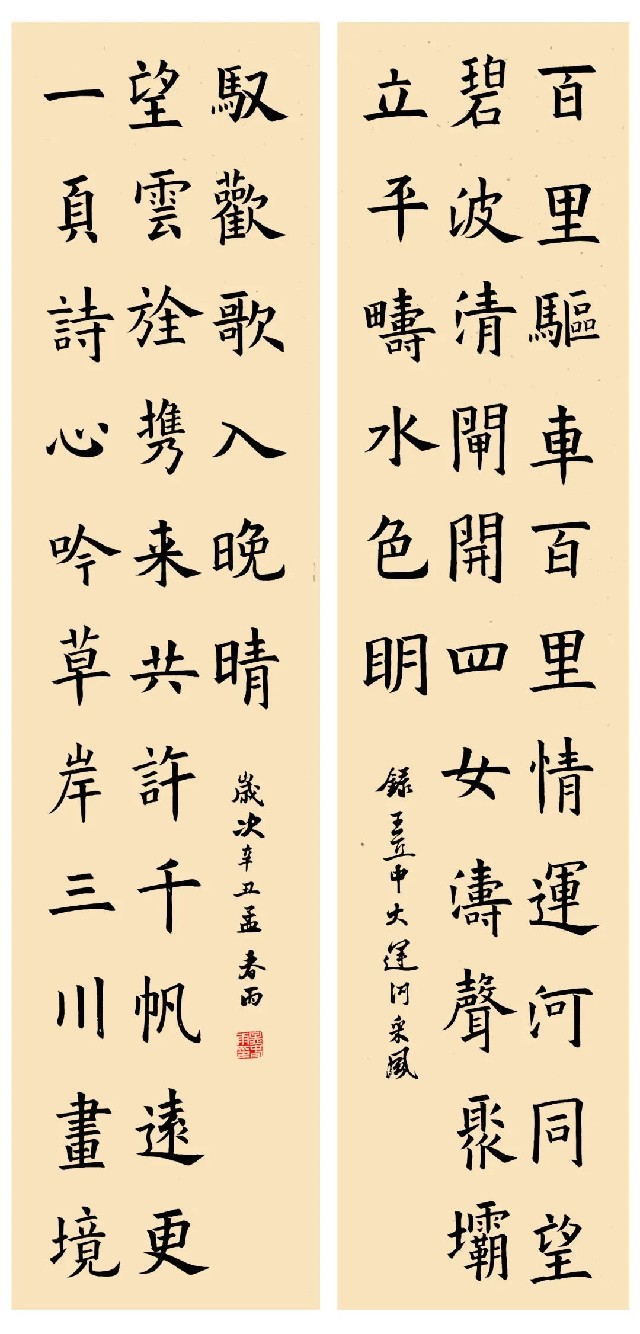 百里驅車百里情運河同望
碧波清閘開四女濤聲聚壩
立平疇水色明
錄王中大運河采風
一頁詩心吟草岸三川畫境
望雲旌携来共許千帆遠更
馭歡歌入晚晴
歲次辛丑孟春雨